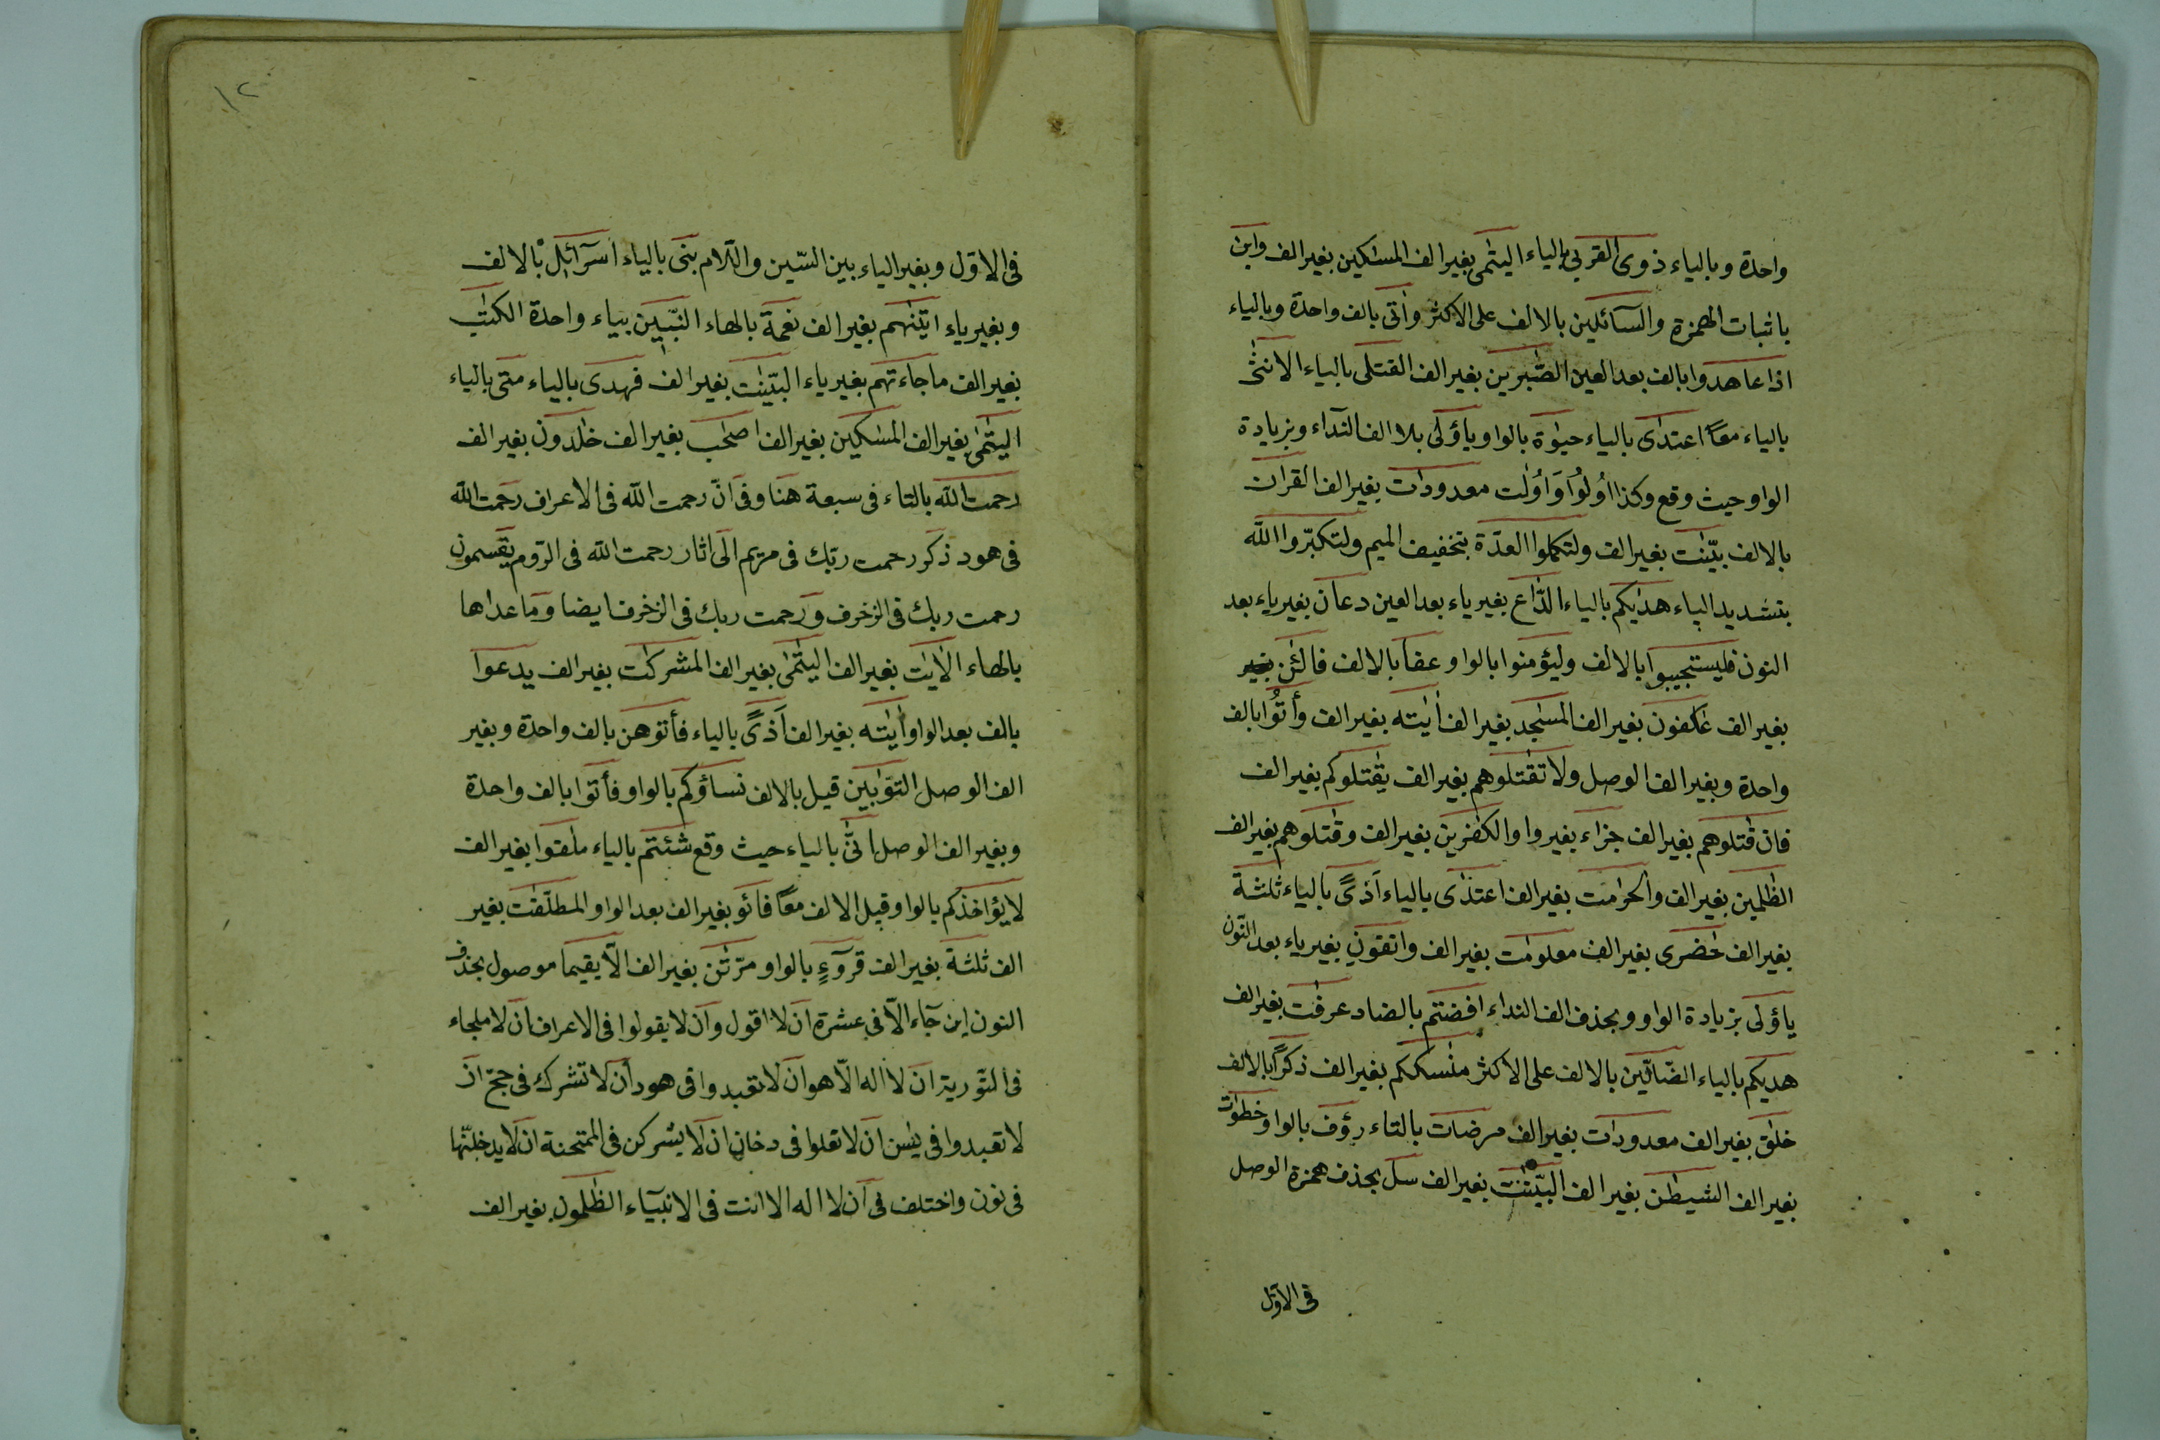 واحدة وبالياء ذوى القربى بالياء اليتٰمى بغير الف المسٰكين بغير الف وابن
باثبات الهمزة والسآئلين بالالف على الاكثر واٰتى بالف واحدة وبالياء
اذا عاهدوا بالف بعد العين الصّٰبرين بغير الف القتلى بالياء الانثٰى
بالياء معًا اعتدٰى بالياء حيٰوة بالواو ياؤلى بلا الف النّداء وبزيادة
الواو حيث وقع وكذا اُولُوا وَاُولٰت معدودات بغير الف القران
بالالف بيّنٰت بغير الف ولتكملوا العدّة بتخفيف الميم ولتكبّروا اللّٰه
بتشديد الباء هديٰكم بالياء الدّاع بغير ياء بعد العين دعان بغير ياء بعد
النون فليستجيبوا بالالف وليؤمنوا بالواو عفا بالالف فالئٰن بغير
بغير الف عٰكفون بغير الف المسٰجد بغير الف اٰيٰته بغير الف وأتُوا بالف
واحدة وبغير الف الوصل ولا تقٰتلوهم بغير الف يقٰتلوكم بغير الف
فان قٰتلوهم بغير الف جزاء بغير واو الكٰفرين بغير الف وقٰتلوهم بغير الف
الظّٰلمين بغير الف والحرمٰت بغير الف اعتدٰى بالياء اَذىً بالياء ثلٰثة
بغير الف حٰضرى بغير الف معلومٰت بغير الف واتقون بغير ياء بعد النّون
ياؤلى بزيادة الواو وبحذف الف النداء افضتم بالضاد عرفٰت بغير الف
هديكم بالياء الضّالّين بالالف على الاكثر منٰسككم بغير الف ذكرًا بالالف
خلٰق بغير الف معدودات بغير الف مرضات بالتاء رؤف بالواو خطوٰت
بغير الف الشيطٰن بغير الف البيّنٰت بغير الف سل بحذف همزة الوصل
فى الاوّل
١٢
فى الاوّل وبغير الياء بين السّين واللّام بنى بالياء اسرآئل بالالف
وبغير ياء اتينٰهم بغير الف نعمة بالهاء النبّيين بياء واحدة الكتٰب
بغير الف ماجاءتهم بغير ياء البيّنٰت بغير الف فهدى بالياء متى بالياء
اليتٰمٰى بغير الف المسٰكين بغير الف اصحٰب بغير الف خٰلدون بغير الف
رحمت اللّٰه بالتاء فى سبعة هنا وفى انّ رحمت اللّٰه فى الاعراف رحمت اللّٰه
فى هود ذكر رحمت ربّك فى مريم الى اثار رحمت اللّٰه فى الرّوم يقسمون
رحمت ربك فى الزخرف ورحمت ربك فى الزخرف ايضا وما عداها
بالهاء الاٰيٰت بغير الف اليتٰمٰى بغير الف المشركٰت بغير الف يدعوا
بالف بعد الواو اٰيٰته بغير الف اَذىً بالياء فأتوهن بالف واحدة وبغير
الف الوصل التوّٰبين قيل بالالف نساؤكم بالواو فأتوا بالف واحدة
وبغير الف الوصل انّٰى بالياء حيث وقع شئتم بالياء ملٰقوا بغير الف
لا يؤاخذكم بالواو وقيل الالف معًا فائو بغير الف بعد الواو المطلّقٰت بغير
الف ثلٰثة بغير الف قروٓءٍ بالواو مرّتٰن بغير الف الّا يقيما موصول بحذف
النون اين جاء الّا فى عشرة ان لا اقول وان لا يقولوا فى الاعراف ان لا ملجاء
فى التّورية ان لا اله الّا هو ان لا تعبدوا فى هود أن لا تشرك فى حجّ ان
لا تعبدوا فى يٰسن ان لا تعلوا فى دخان ان لا يشركن فى الممتحنة ان لا يدخلنّها
فى نون واختلف فى ان لا اله الا انت فى الانبيآء الظّٰلمون بغير الف